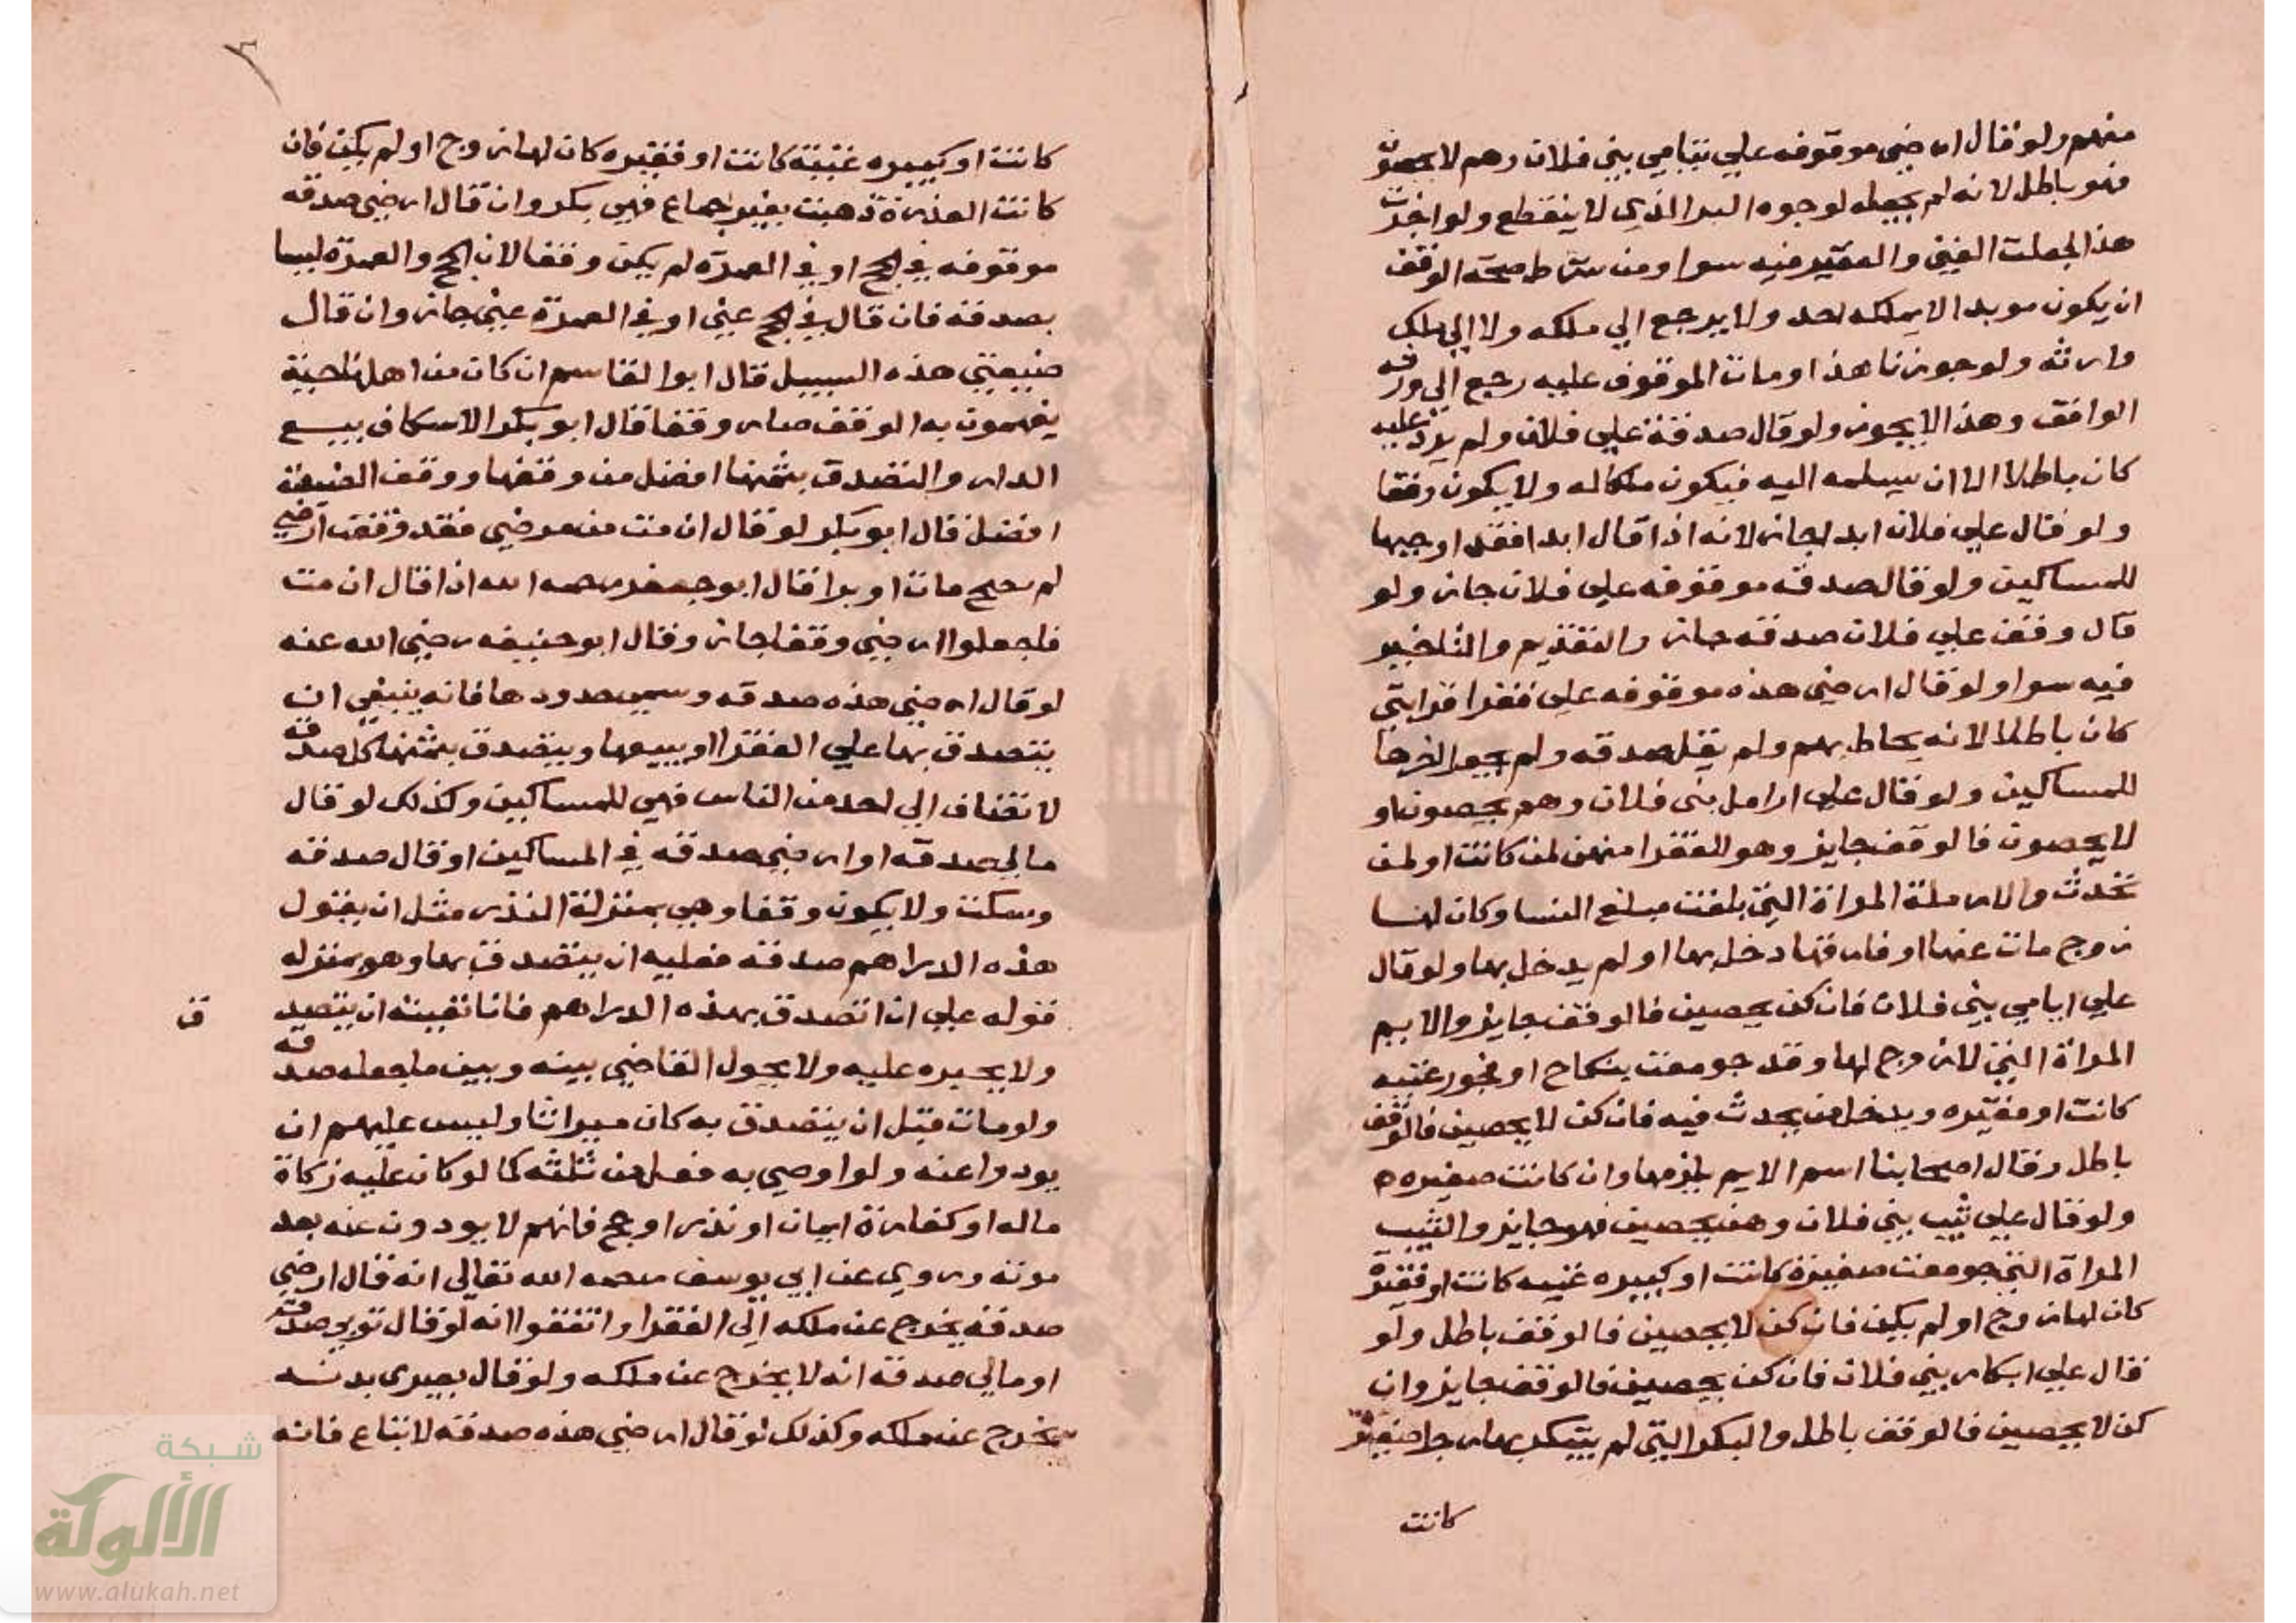 منهم ولو قال ارضي موقوفه علي يتامي بني فلان وهم لا يحصون
فهو باطل لانه لم يجعله لوجوه البر الذي لا ينقطع ولو اخذت
هذا لجعلت الغني والفقير فيه سوا ومن شرط صحة الوقف
ان يكون موبدا لا يملكه احد ولا يرجع الي ملكه ولا الي ملك
وارثه ولو جوزنا هذا ومات الموقوف عليه رجع الي ورثة
الواقف وهذا لا يجوز ولو قال صدقة علي فلان ولم يزد عليه
كان باطلا الا ان يسلمه اليه فيكون ملكا له ولا يكون وقفا
ولو قال علي فلان ابدا جاز لانه اذا قال ابدا فقد اوجبها
للمساكين ولو قال صدقه موقوفه علي فلان جاز ولو
قال وقف علي فلان صدقه جاز والتقديم والتاخير
فيه سوا ولو قال ارضي هذه موقوفه علي فقرا قرابتي
كان باطلا لانه يحاط بهم ولم يقل صدقه ولم يجعل اخرها
للمساكين ولو قال علي ارامل بني فلان وهم يحصون او
لا يحصون فالوقف جايز وهو للفقرا منهن لمن كانت او لمن
تحدث والارملة المراة التي بلغت مبلغ النسا وكان لها
زوج مات عنها او فارقها دخل بها او لم يدخل بها ولو قال
علي ايامي بني فلان فان كن يحصين فالوقف جايز والايم
المراة التي لا زوج لها وقد جومعت بنكاح او فجور غنيه
كانت او فقيره ويدخل من يحدث فيه فان كن لا يحصين فالوقف
باطل وقال اصحابنا اسم الايم يلزمها وان كانت صغيره
ولو قال علي ثيب بني فلان وهن يحصين فهو جايز والثيب
المراة التي جومعت صغيرة كانت او كبيره غنيه كانت او فقيرة
كان لها زوج او لم يكن فان كن لا يحصين فالوقف باطل ولو
قال علي ابكار بني فلان فان كن يحصين فالوقف جايز وان
كن لا يحصين فالوقف باطل والبكر التي لم يبتكر بها رجل صغيرة
كانت
كانت او كبيره غنية كانت او فقيره كان لها زوج او لم يكن فان
كانت العذرة ذهبت بغير جماع فهي بكر وان قال ارضي صدقه
موقوفه في الحج او في العمرة لم يكن وقفا لان الحج والعمرة ليسا
بصدقه فان قال في الحج عني او في العمرة عني جاز وان قال
ضيعتي هذه السبيل قال ابوا القاسم ان كان من اهل ناحية
يفهمون به الوقف صار وقفا قال ابو بكر الاسكاف بيع
الدار والتصدق بثمنها افضل من وقفها ووقف الضيعة
افضل قال ابو بكر لو قال ان مت من مرضي فقد وقفت ارضي
لم يصح مات او برا قال ابو جعفر رحمه الله اذا قال ان مت
فاجعلوا ارضي وقفا جاز وقال ابو حنيفه رضي الله عنه
لو قال ارضي هذه صدقه وسمي حدودها فانه ينبغي ان
يتصدق بها علي الفقرا او يبيعها ويتصدق بثمنها كل صدقة
لا تضاف الي احد من الناس فهي للمساكين وكذلك لو قال
مالي صدقه او ارضي صدقه في المساكين او قال صدقه
وسكت ولا يكون وقفا وهي بمنزلة النذر مثل ان يقول
هذه الدراهم صدقه فعليه ان يتصدق بها وهو بمنزله
قوله علي ان اتصدق بهذه الدراهم فانا نفتيه ان يتصد
ق
ولا يجبره عليه ولا يحول القاضي بينه وبين ما جعله صدقه
ولو مات قبل ان يتصدق به كان ميراثا وليس عليهم ان
يودوا عنه ولو اوصي به فعل من ثلثه كما لو كان عليه زكاة
ماله او كفارة ايمان او نذر او حج فانهم لا يودون عنه بعد
موته وروي عن ابي يوسف رحمه الله تعالي انه قال ارضي
صدقه يخرج عن ملكه الي الفقرا واتفقوا انه لو قال ثوبي صدقة
او مالي صدقه انه لا يخرج عن ملكه ولو قال بعيري بدنه
يخرج عن ملكه وكذلك لو قال ارضي هذه صدقه لا تباع فانه
شبكة
الألوكة
www.alukah.net